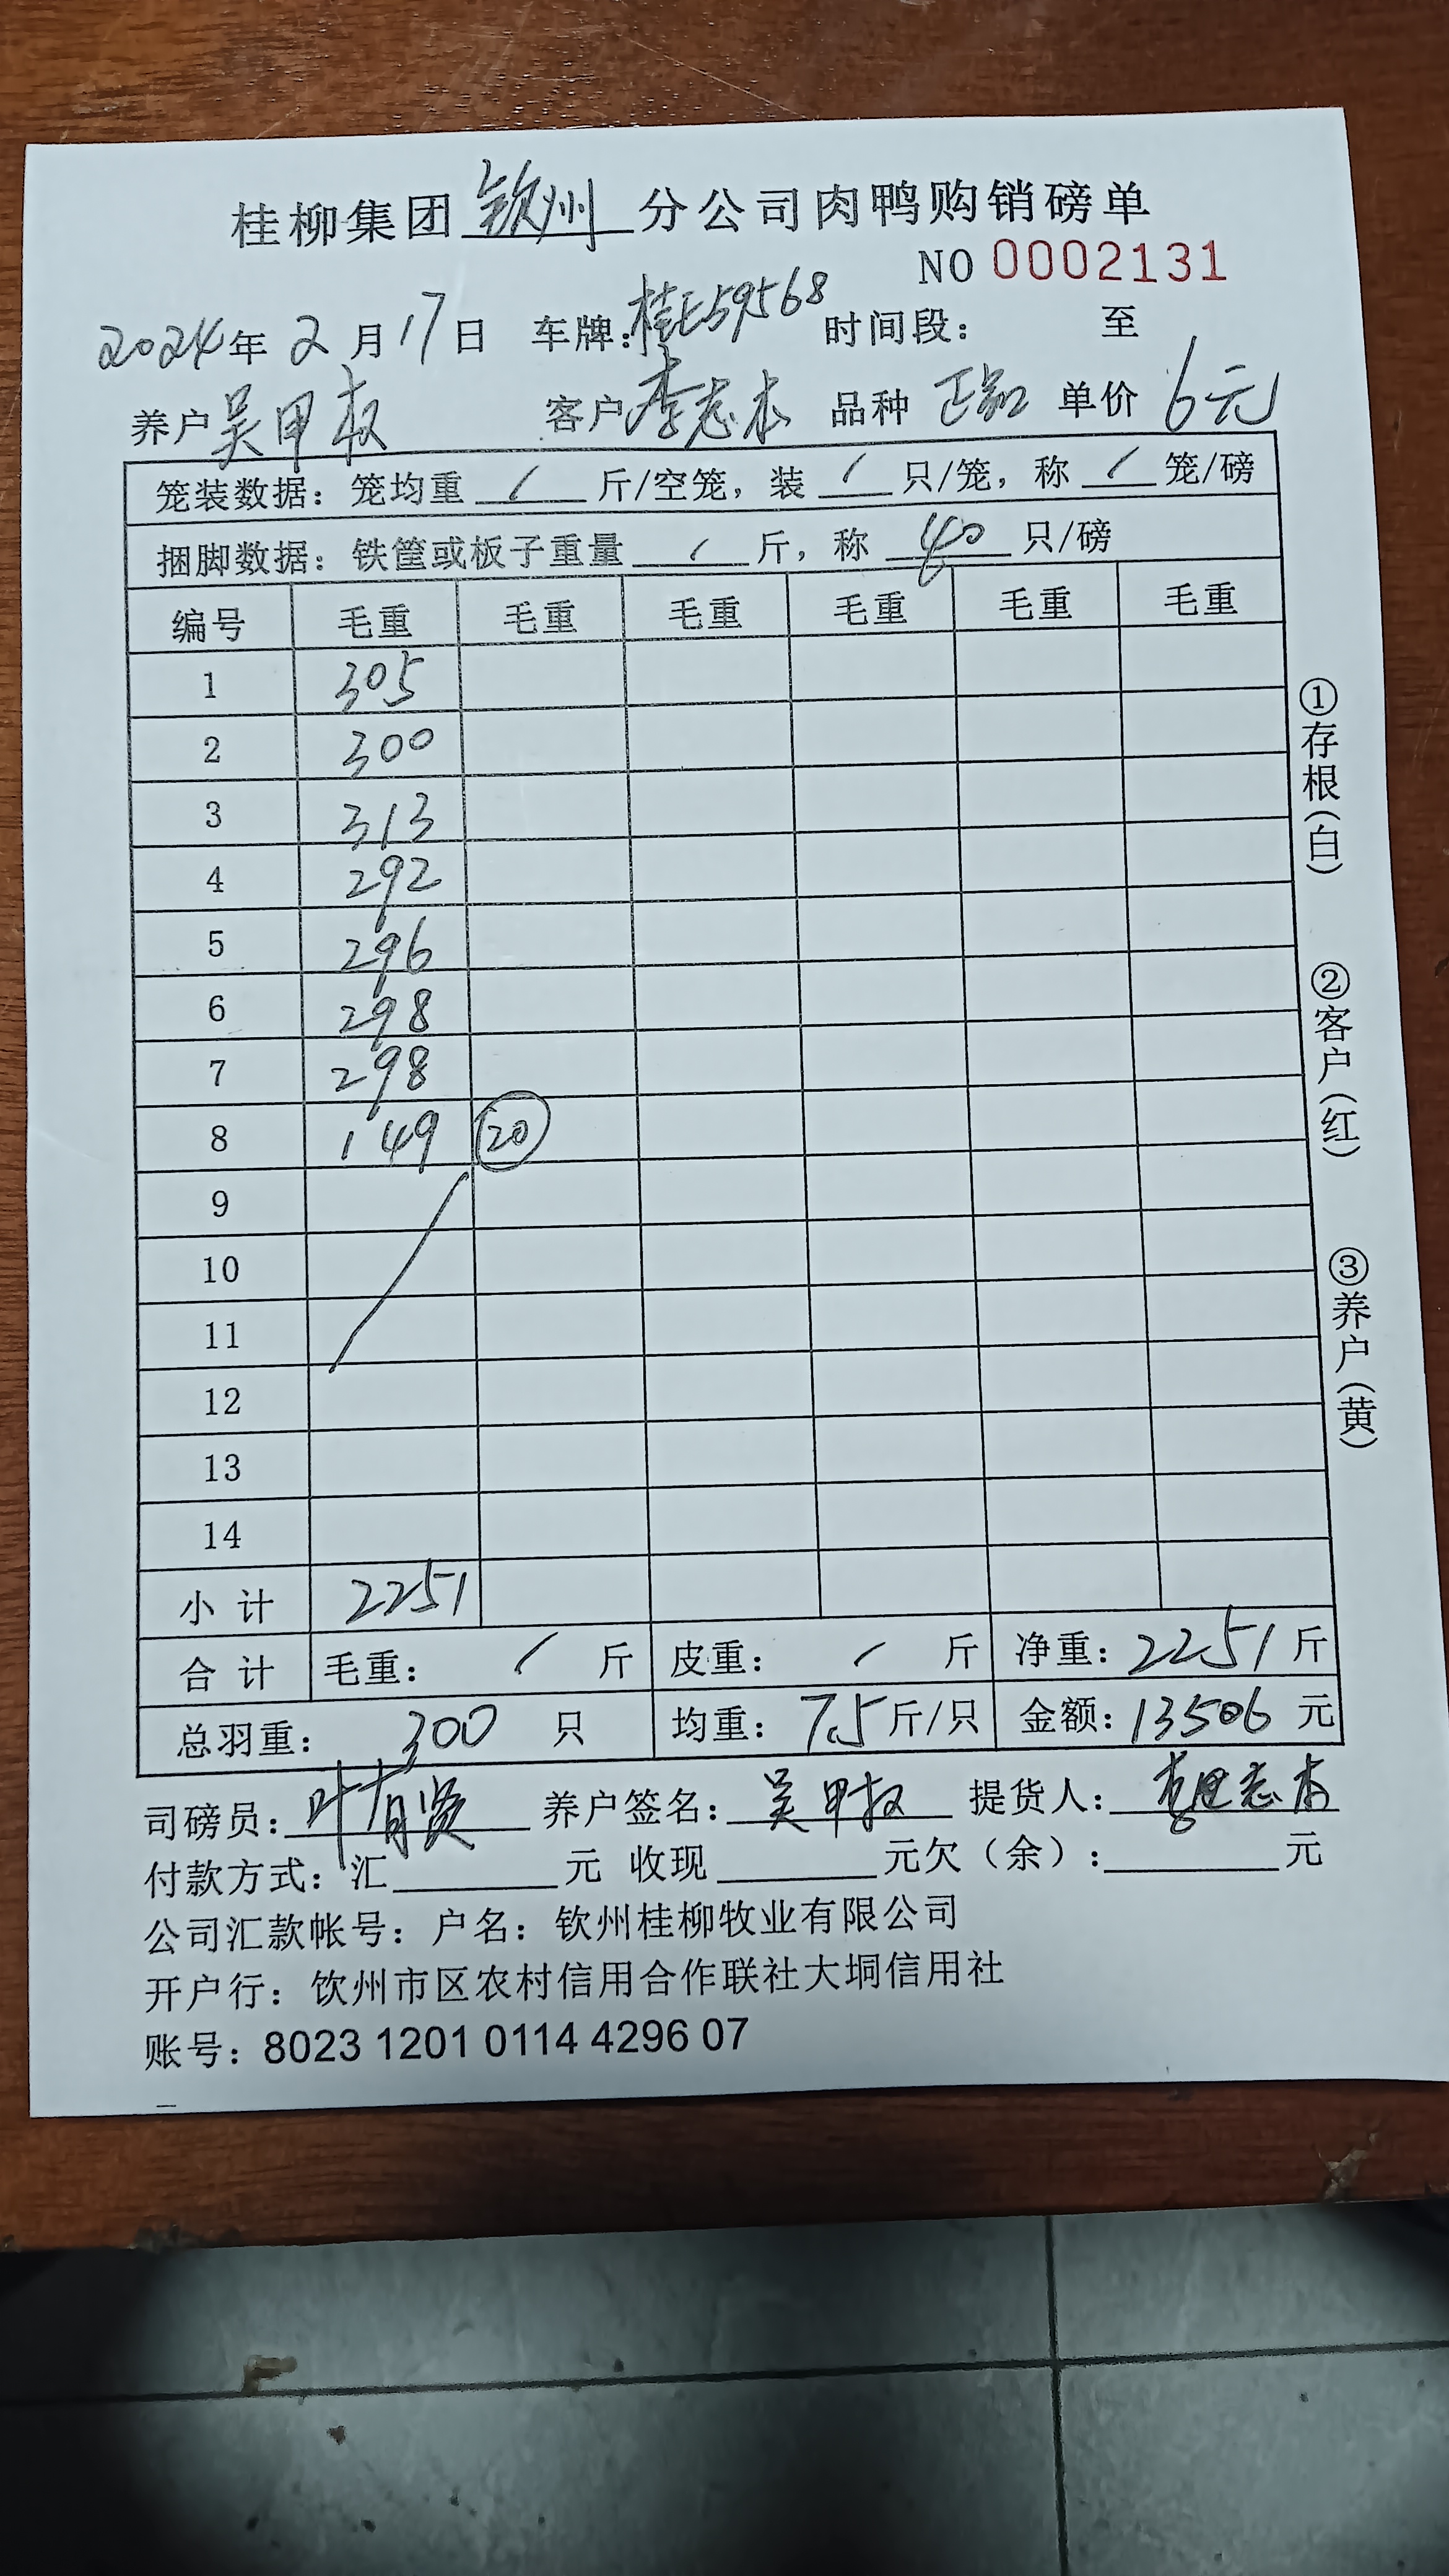 桂柳集团 钦州 分公司肉鸭购销磅单
NO 0002131
2024年 2月 17日 车牌:桂E59568 时间段: 至
养户 吴甲权 客户 李志杰 品种 正品 单价 6元
笼装数据: 笼均重 / 斤/空笼, 装 / 只/笼, 称 / 笼/磅
捆脚数据: 铁筐或板子重量 / 斤, 称 40 只/磅
编号 毛重 毛重 毛重 毛重 毛重 毛重
1 305
2 300
3 313
4 292
5 296
6 298
7 298
8 149 20
9
10
11
12
13
14
小计 2251
合计 毛重: / 斤 皮重: / 斤 净重: 2251 斤
总羽重: 300 只 均重: 7.5 斤/只 金额: 13506 元
司磅员: 叶有贤 养户签名: 吴甲权 提货人: 李志杰
付款方式: 汇 元 收现 元欠(余): 元
公司汇款帐号: 户名: 钦州桂柳牧业有限公司
开户行: 钦州市区农村信用合作联社大垌信用社
账号: 8023 1201 0114 4296 07
①存根(白)
②客户(红)
③养户(黄)